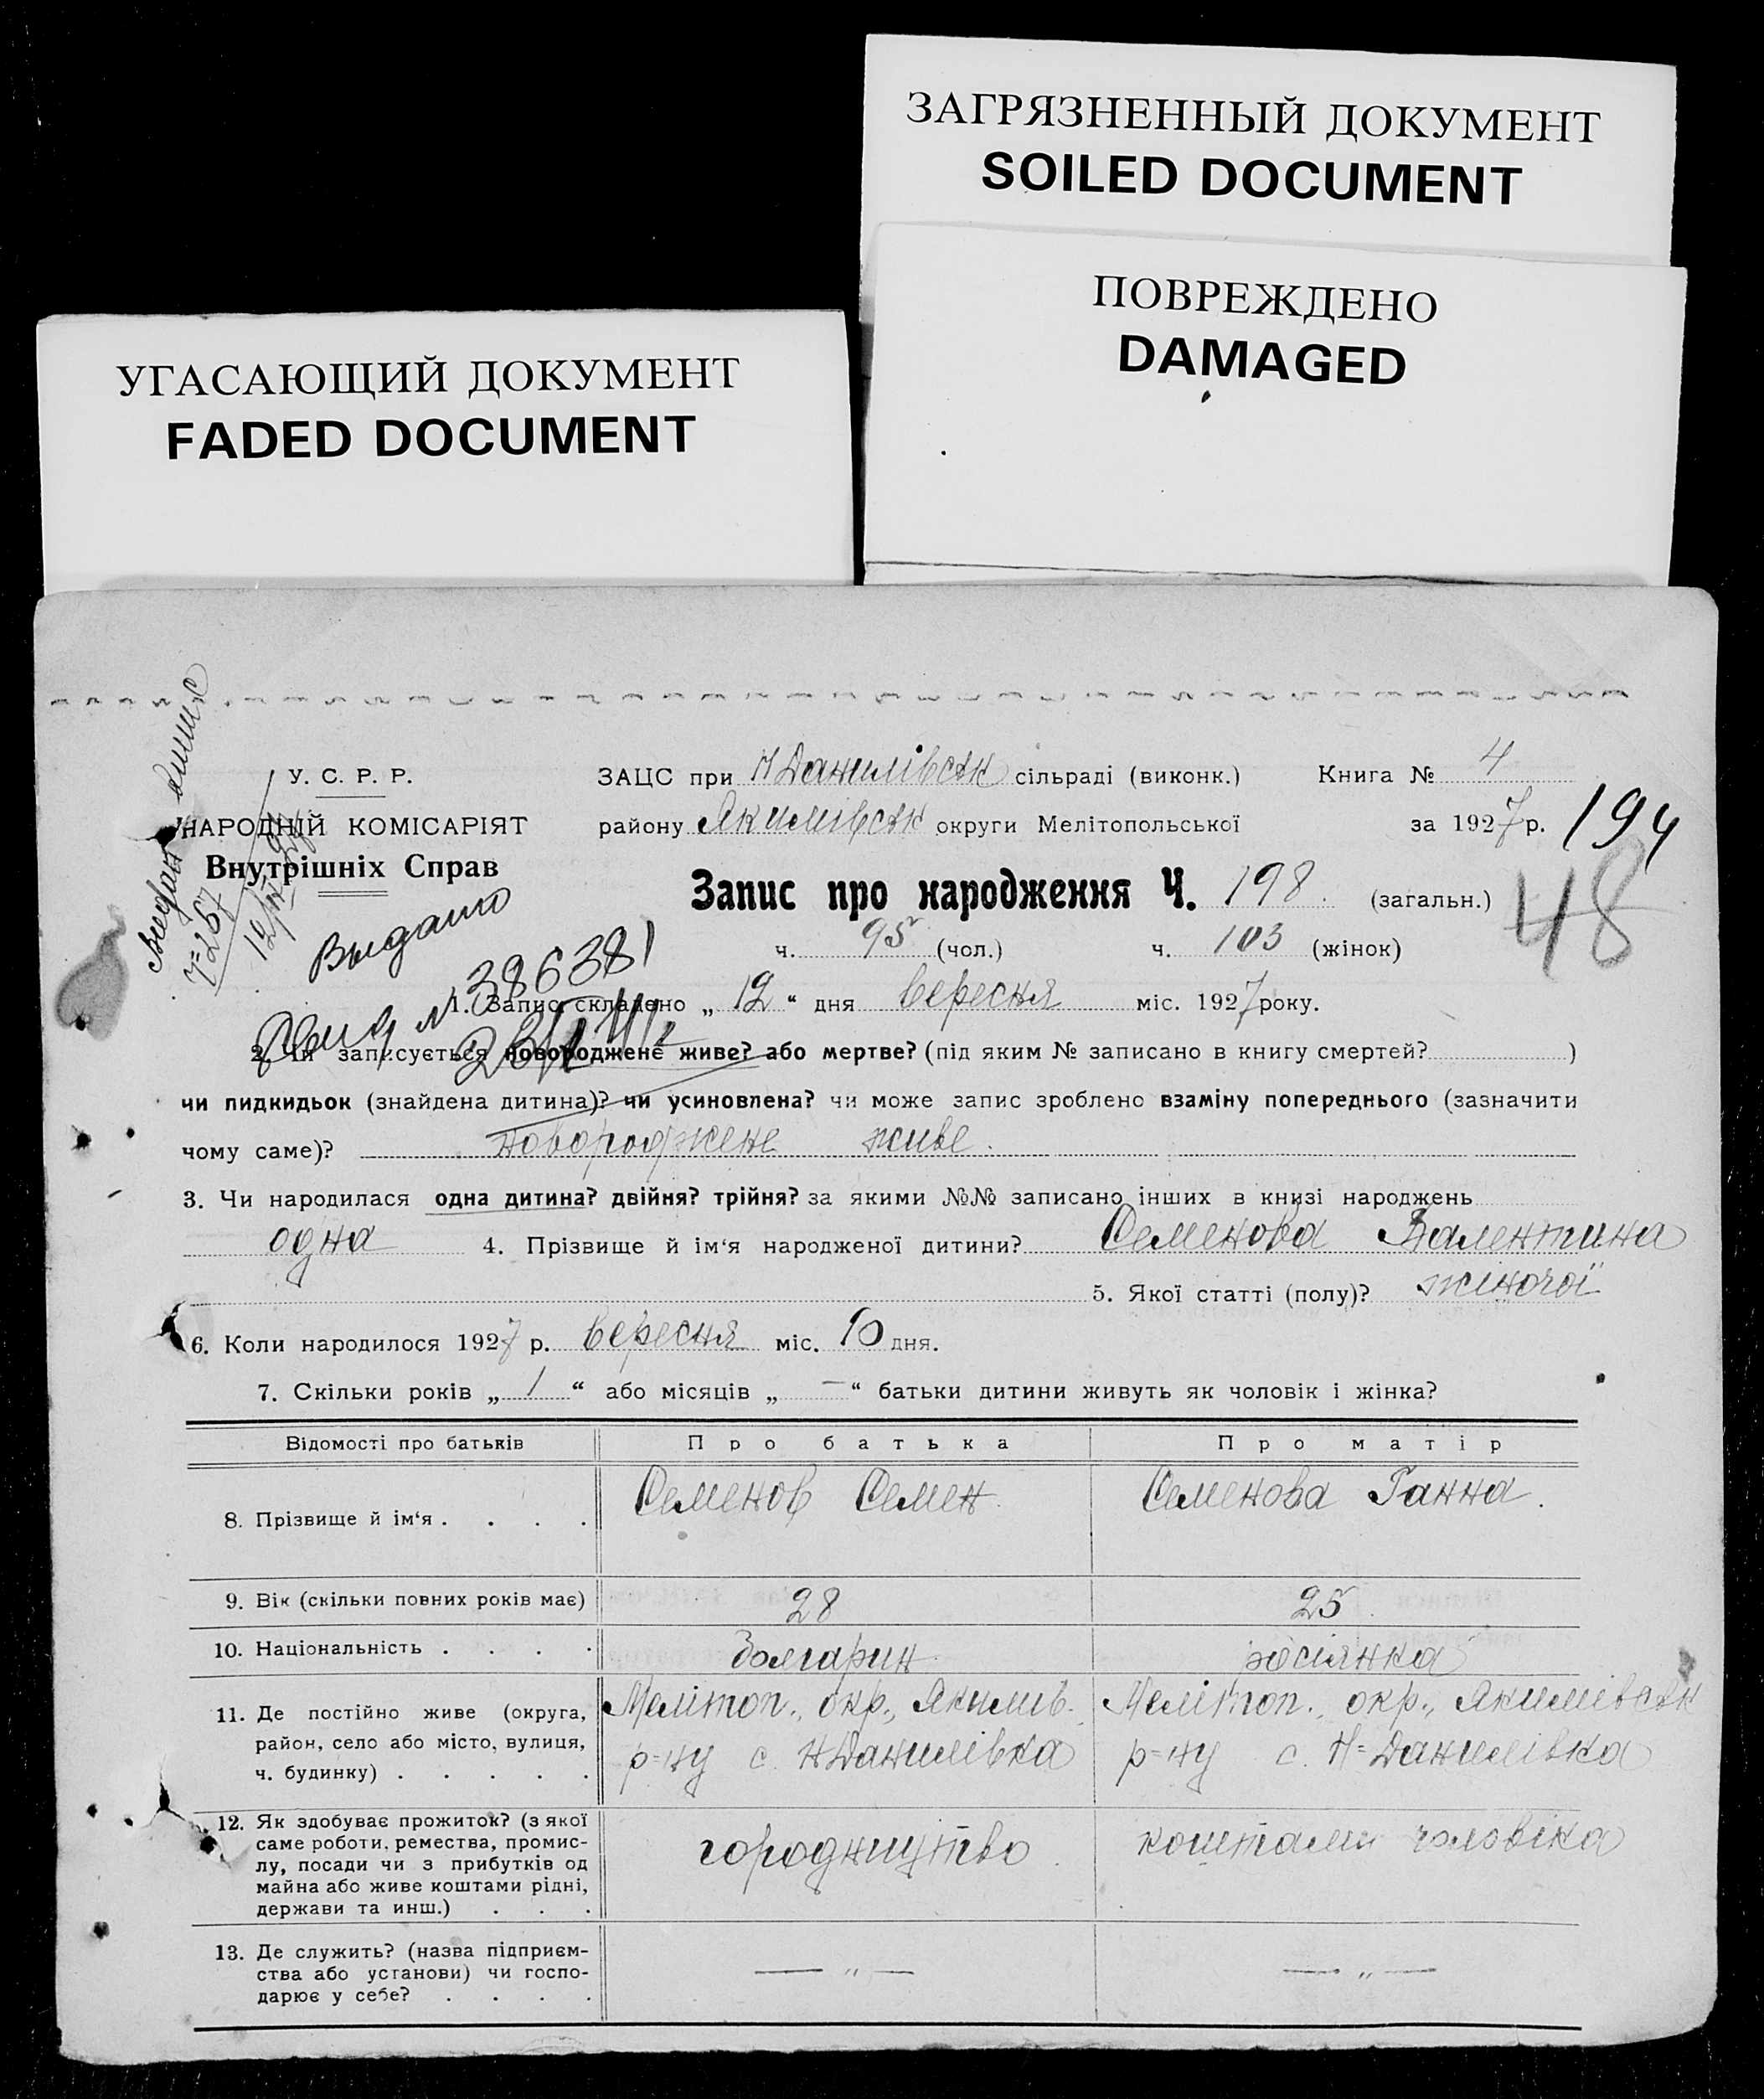 ЗАГРЯЗНЕННЫЙ ДОКУМЕНТ
SOILED DOCUMENT
ПОВРЕЖДЕНО
DAMAGED
УГАСАЮЩИЙ ДОКУМЕНТ
FADED DOCUMENT
У. С. Р. Р.
НАРОДНІЙ КОМІСАРІЯТ
Внутрішніх Справ
ЗАЦС при Н Данилівськ сільраді (виконк.) Книга № 4
району Якимівськ округи Мелітопольської за 1927 р. 194
Запис про народження Ч. 198. (загальн.) 48
ч. 95 (чол.) ч. 103 (жінок)
Выдано
386381
1. Запис складено „ 12 “ дня вересня міс. 1927 року.
2. Чи записується новороджене живе? або мертве? (під яким № записано в книгу смертей? )
чи пидкидьок (знайдена дитина)? чи усиновлена? чи може запис зроблено взаміну попереднього (зазначити
чому саме)? новороджене живе.
3. Чи народилася одна дитина? двійня? трійня? за якими №№ записано інших в книзі народжень
одна 4. Прізвище й ім‘я народженої дитини? Семенова Валентина
5. Якої статті (полу)? жіночої
6. Коли народилося 1927 р. вересня міс. 10 дня.
7. Скільки років „ 1 “ або місяців „ — “ батьки дитини живуть як чоловік і жінка?
Відомості про батьків Про батька Про матір
8. Прізвище й ім‘я . . . . Семенов Семен. Семенова Ганна.
9. Вік (скільки повних років має) 28 25
10. Національність . . . . болгарин росіянка
11. Де постійно живе (округа, Меліто­п., окр., Якимів. Мелітоп., окр., Якимівськ
район, село або місто, вулиця, р=ну с. Н Данилівка р=ну с. Н=Данилівка
ч. будинку) . . . . .
12. Як здобуває прожиток? (з якої
саме роботи, ремества, промис- городництво коштами чоловіка
лу, посади чи з прибутків од
майна або живе коштами рідні,
держави та инш.) . . .
13. Де служить? (назва підприєм-
ства або установи) чи госпо- — „ — — „ —
дарює у себе? . . . .